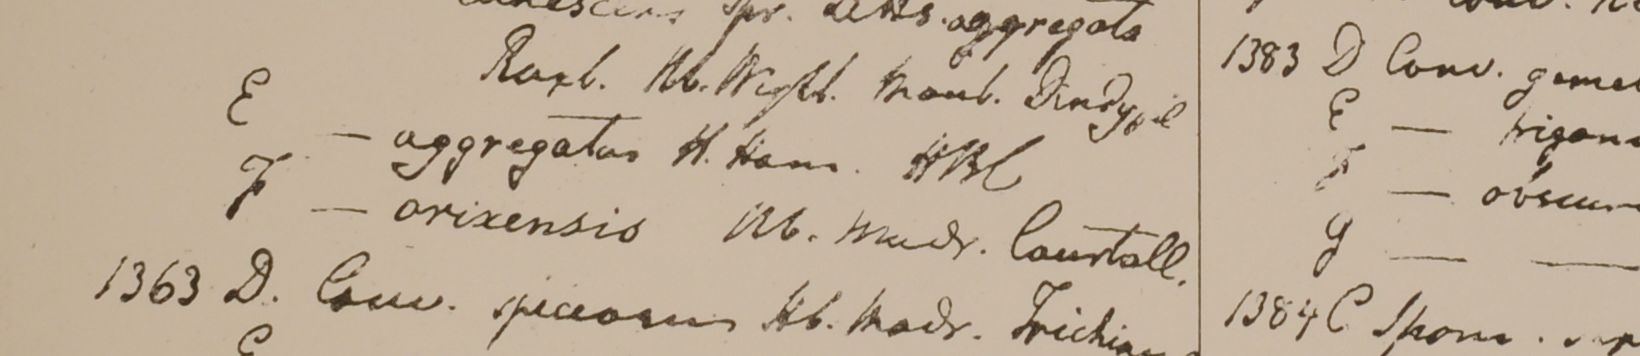 Spr. aggregata
Roxb. Hb. Wight. mont. Dindygul
E — aggregatus H. Ham. HBC
F — orixensis Hb. Madr. Courtall.
1363 D. Conv. speciosus Hb. Madr. Trichin
E
1383 D Conv. gemel
E — trigon
F — obscur
G — —
1384 C Ipom.